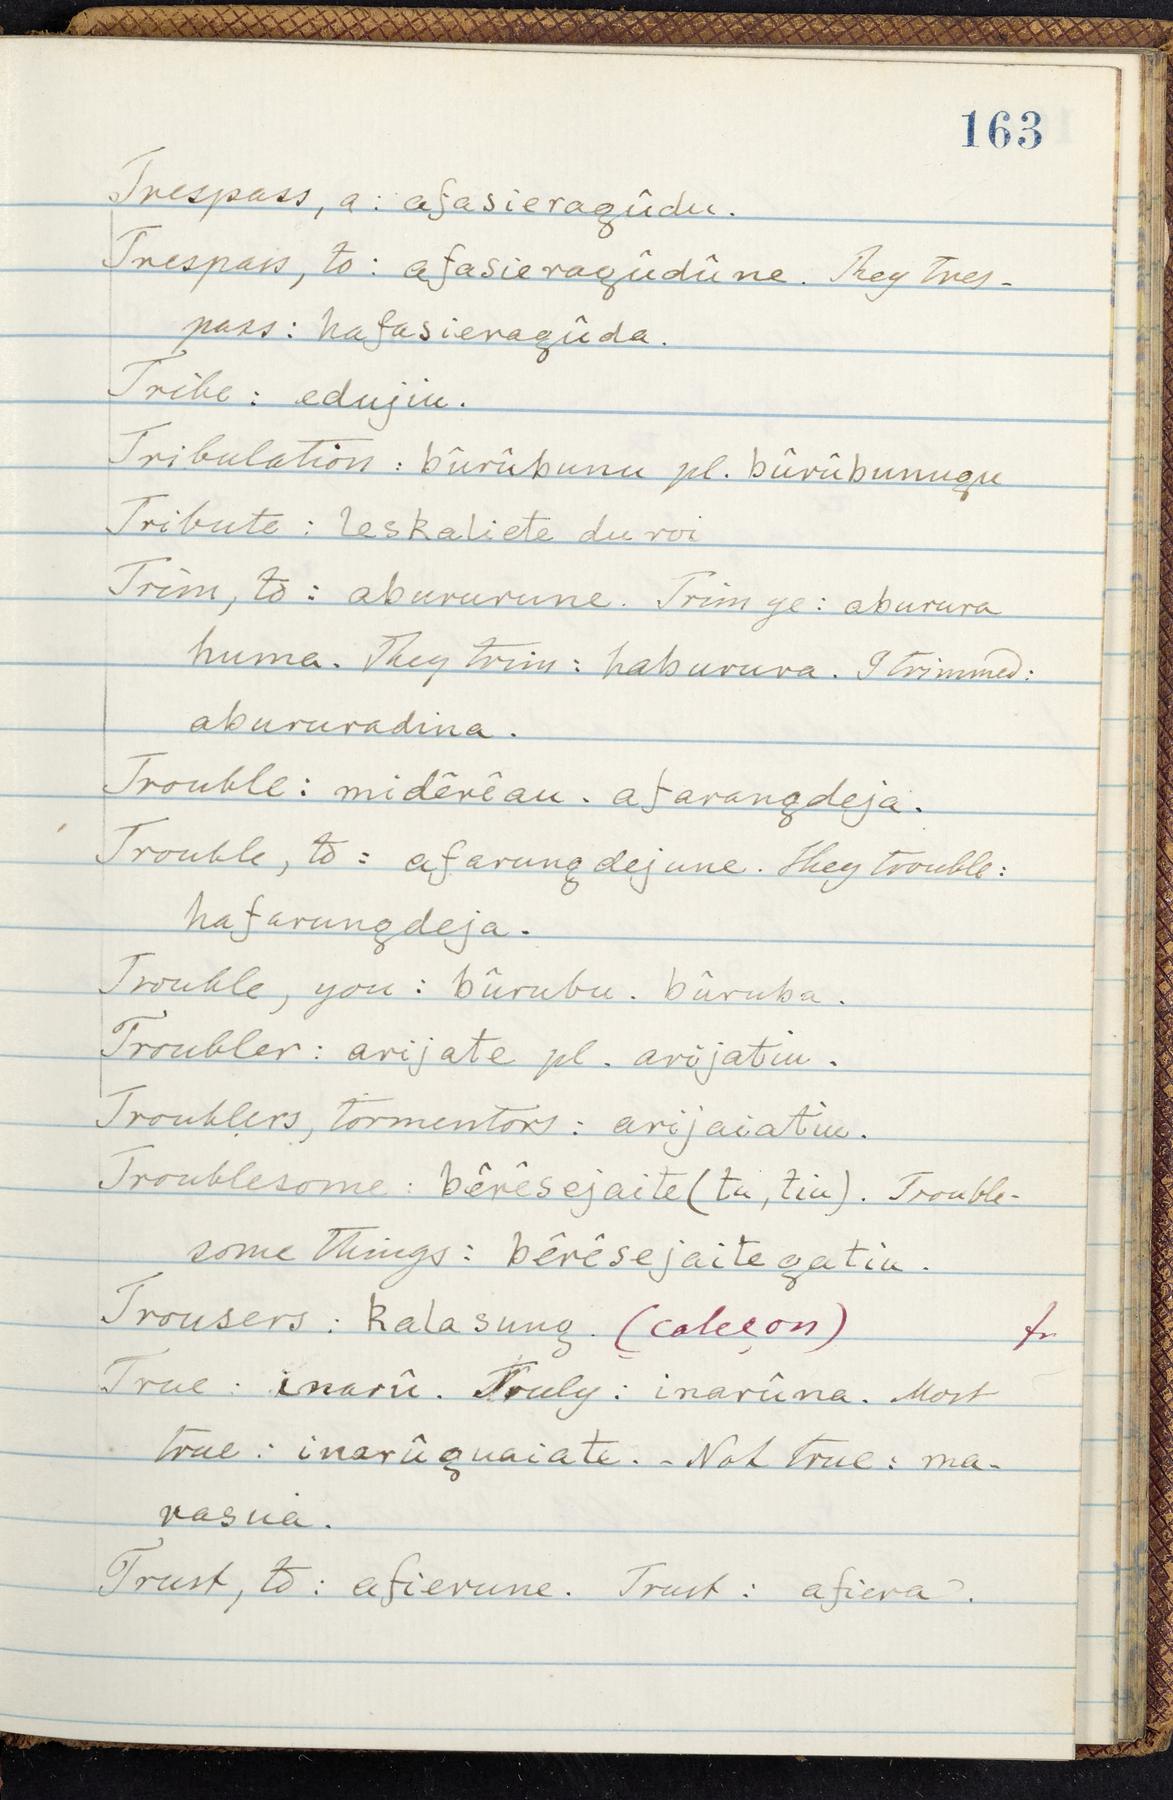 163
Trespass, a: afasieragûdu.
Trespass, to: afasieragûdûne. They tres-
pass: hafasieragûda.
Tribe: edujiu.
Tribulation: bûrûbunu pl. bûrûbunugu
Tribute: leskaliete du roi
Trim, to: abururune. Trim ye: aburura
huma. They trim: haburura. I trimmed:
abururadina.
Trouble: midêrêau. afarangdeja.
Trouble, to: afarungdejune. They trouble:
hafarungdeja.
Trouble, you: bûrubu. bûruba.
Troubler: arijate pl. arijatiu.
Troublers, tormentors: arijaiatiu.
Troublesome: bêrêsejaite (tu, tiu). Trouble-
some things: bêrêsejaitegatiu.
Trousers: kalasung. (caleçon) fr
True: inarû. Truly: inarûna. Most
true: inarûguaiate. - Not true: ma-
rasua.
Trust, to: afierune. Trust: afiera.